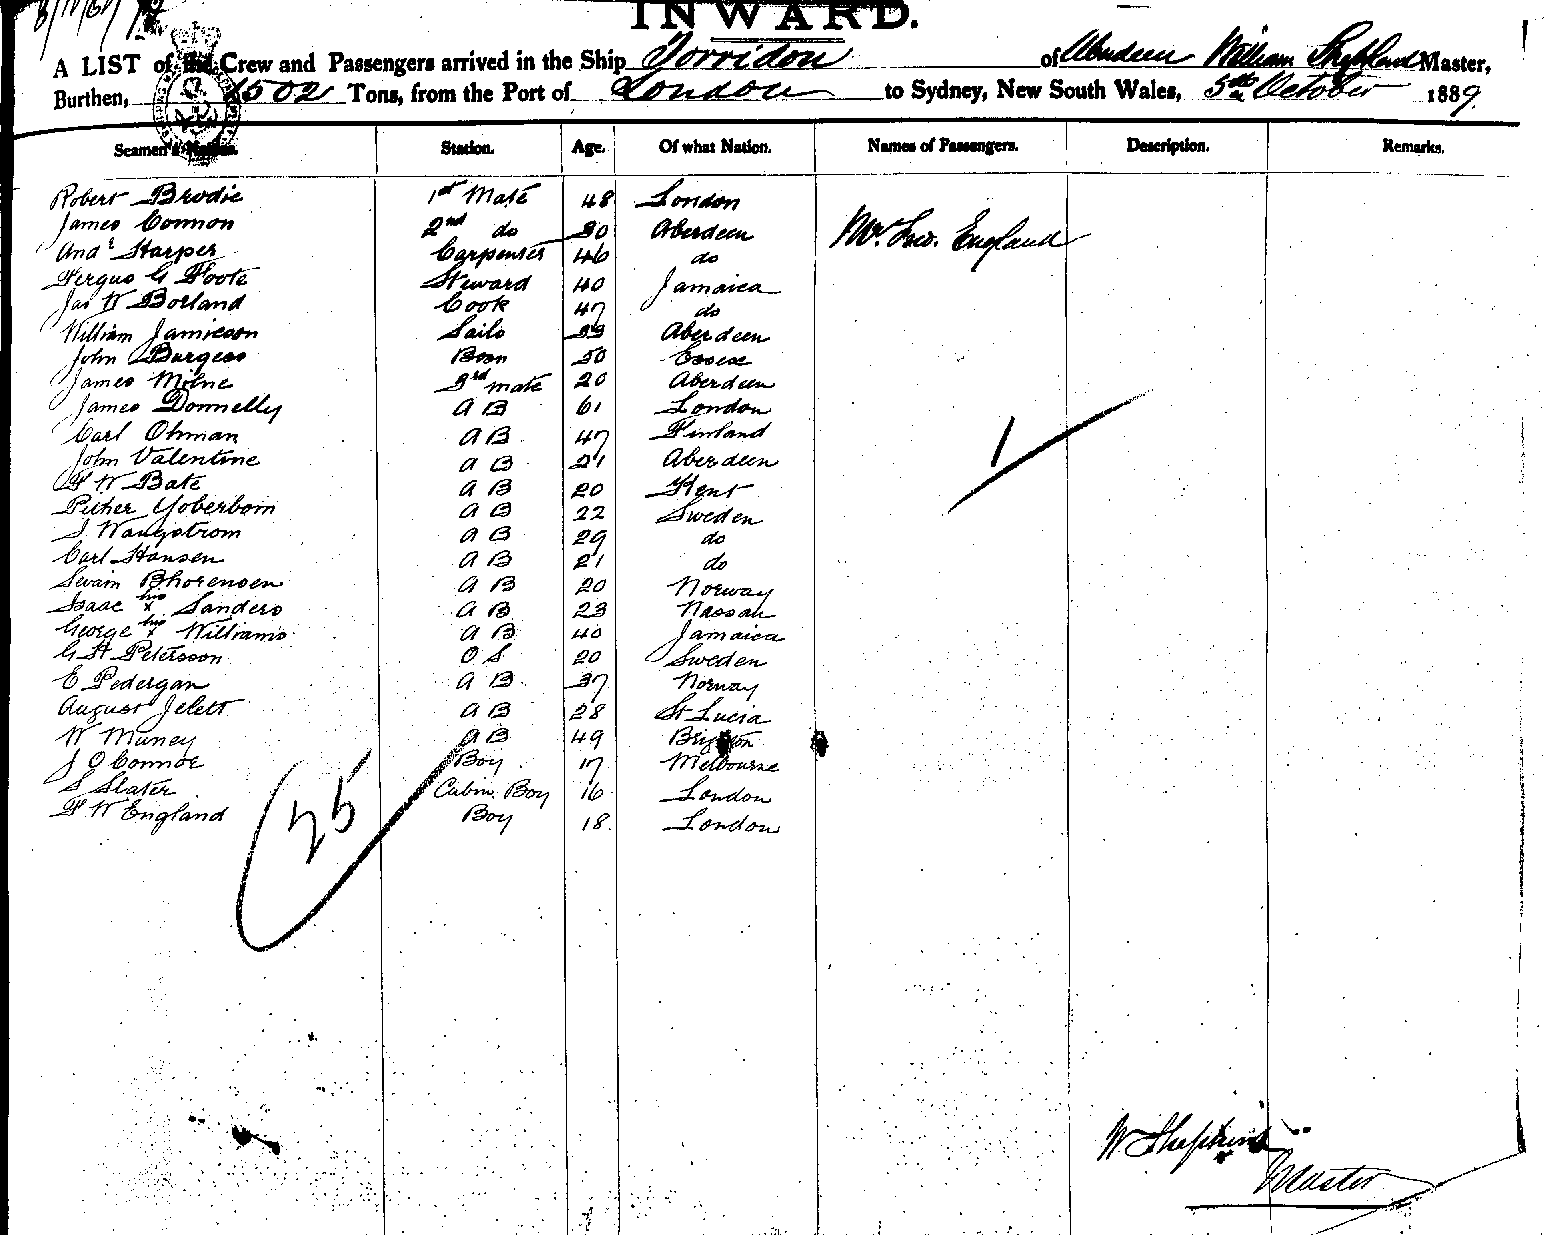 INWARD.
A LIST of the Crew and Passengers arrived in the Ship Torridon of Aberdeen William Shepherd Master,
Burthen, 1502 Tons, from the Port of London to Sydney, New South Wales, 5th October 1889.
Seamen's Names. Station. Age. Of what Nation. Names of Passengers. Description. Remarks.
Robert Brodie 1st Mate 48 London
James Connon 2nd do 30 Aberdeen Mr. Fred. England
Andr Harper Carpenter 46 do
Fergus G Foote Steward 40 Jamaica
Jas W Borland Cook 47 do
William Jamieson Sails 33 Aberdeen
John Burgess Bosn 50 Essex
James Milne 3rd mate 20 Aberdeen
James Donnelly A B 61 London
Carl Ohman A B 47 Finland
John Valentine A B 21 Aberdeen
F W Bate A B 20 Kent
Petter Yoberbom A B 22 Sweden
J Wangstrom A B 29 do
Carl Hansen A B 21 do
Swain Bhorensen A B 20 Norway
Isaac his x Sanders A B 23 Nassau
George his x Williams A B 40 Jamaica
G A Petersson O S 20 Sweden
E Pedergan A B 37 Norway
August Jelett A B 28 St Lucia
W Muney A B 49 Brighton
J O Connor Boy 17 Melbourne
S Slater Cabin Boy 16 London
F W England Boy 18 London
1
25
W Shepherd
Master